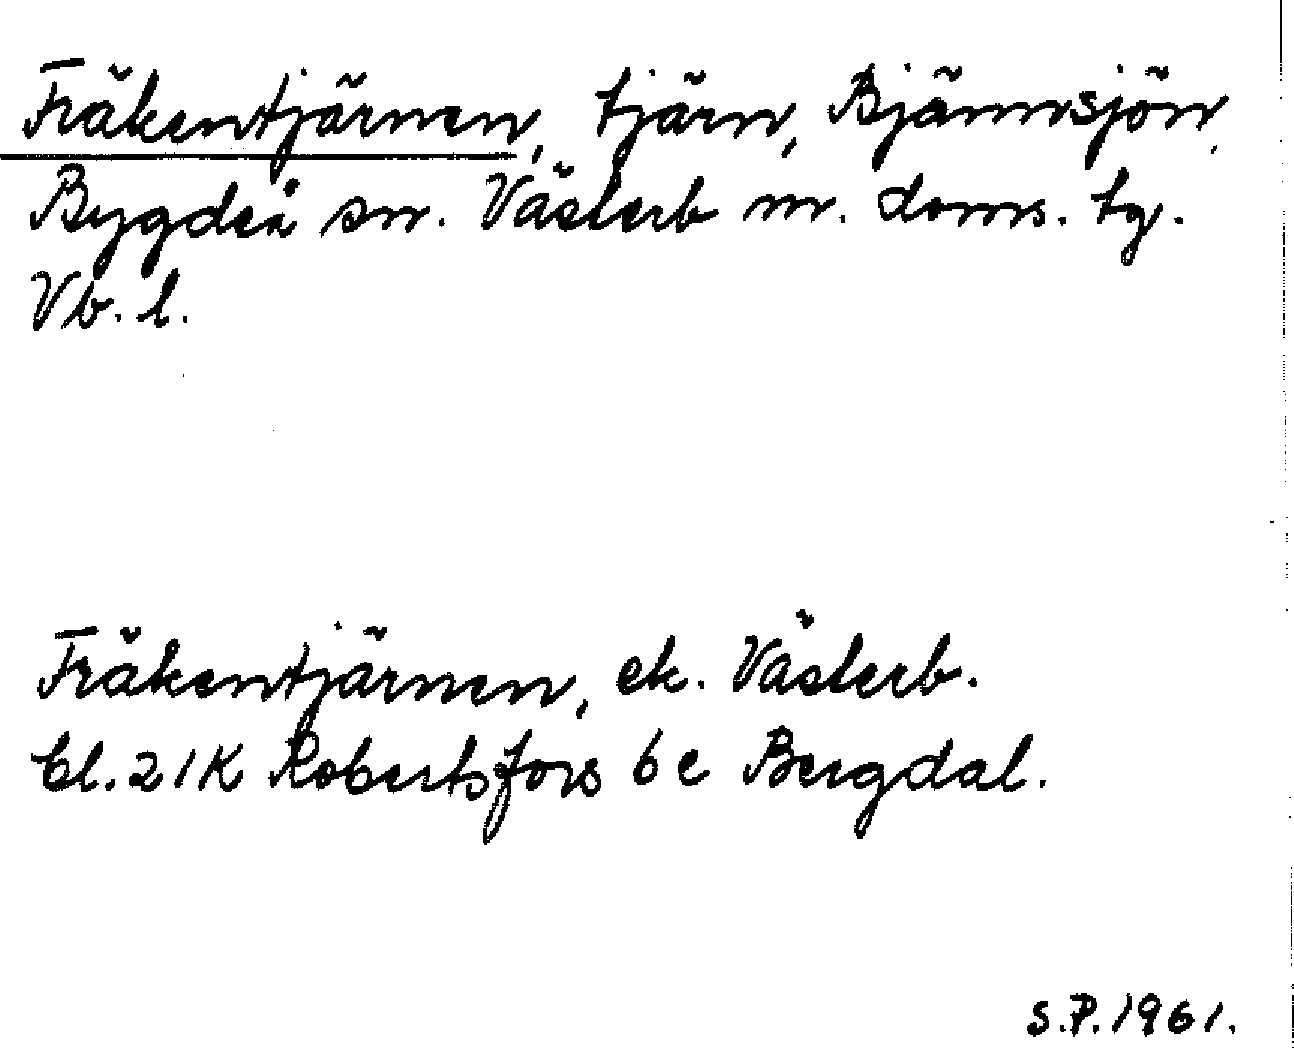 Fräkentjärnen, tjärn, Bjännsjön,
Bygdeå sn. Västerb n. doms. tg.
Vb. l.
Fräkentjärnen, ek. Västerb.
bl. 21K Robertsfors 6e Bergdal.
S.P. 1961.